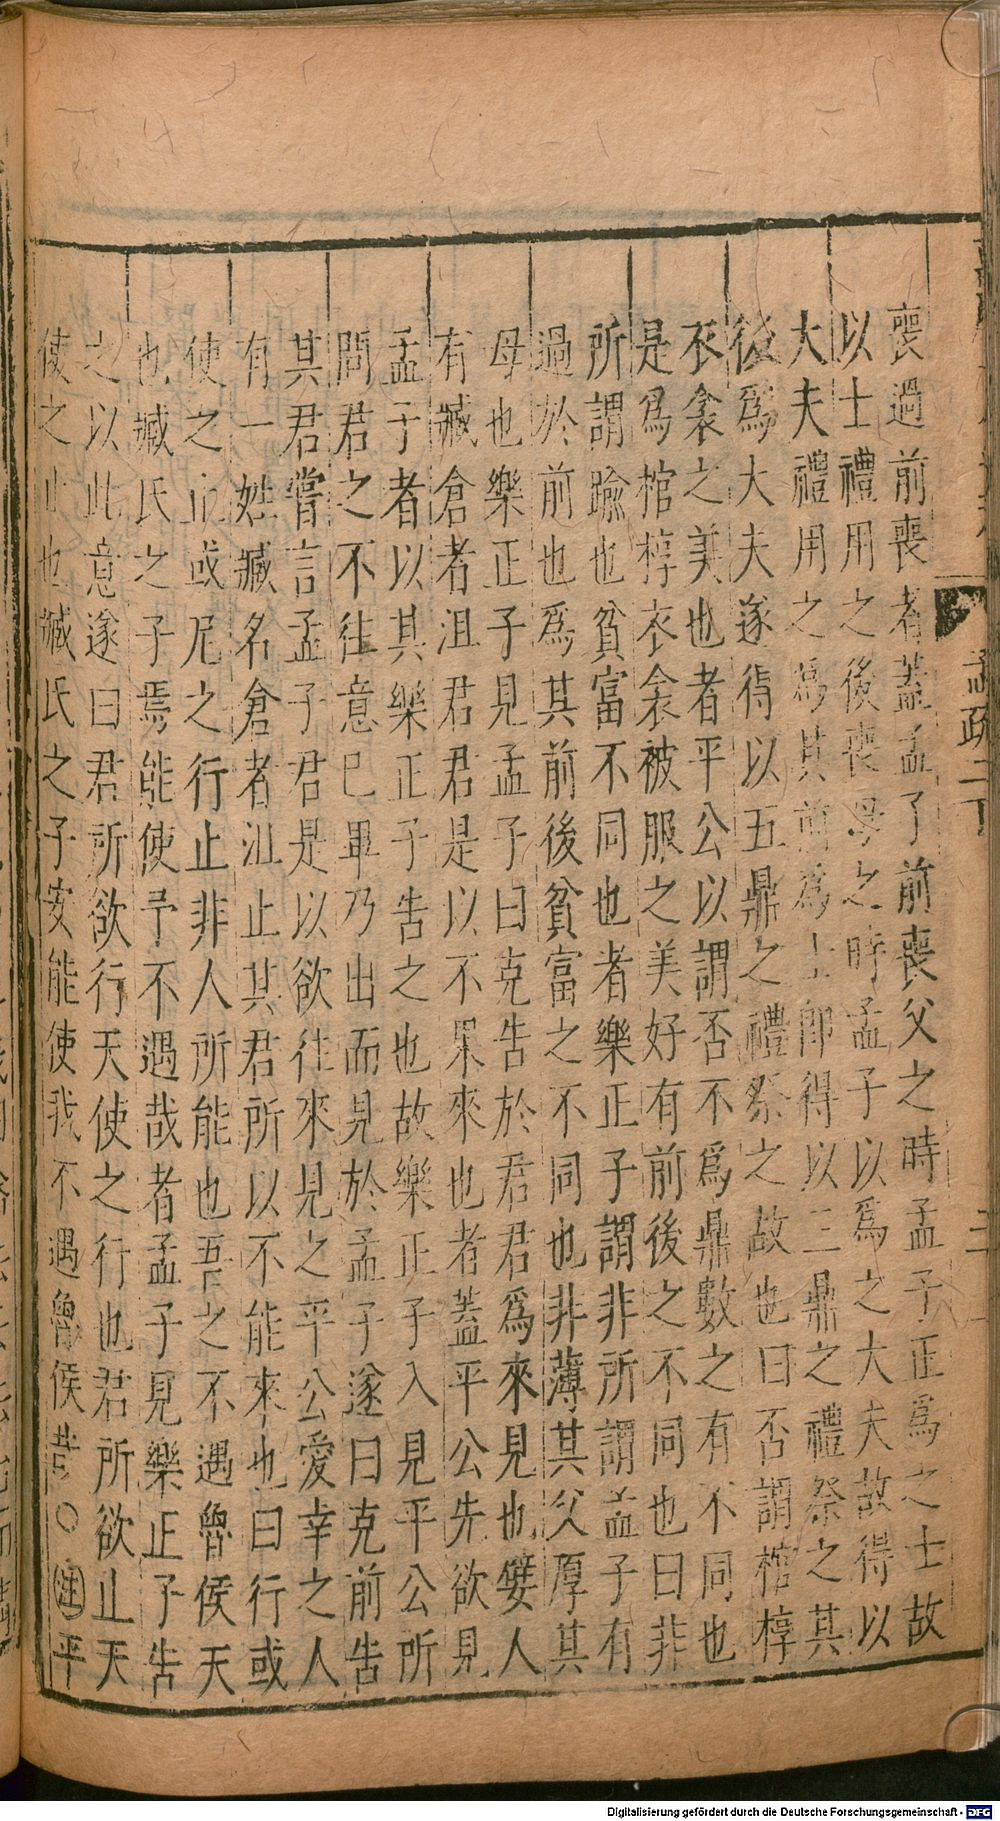 喪過前喪者蓋孟子前喪父之時孟子正爲之士故
以士禮用之後喪母之時孟子以爲之大夫故得以
大夫禮用之爲其前爲士即得以三鼎之禮祭之其
後爲大夫遂得以五鼎之禮祭之故也曰否謂棺椁
衣衾之美也者平公以謂否不爲鼎數之有不同也
是爲棺椁衣衾被服之美好有前後之不同也曰非
所謂踰也貧富不同也者樂正子謂非所謂孟子有
過於前也爲其前後貧富之不同也非薄其父厚其
母也樂正子見孟子曰克告於君君爲來見也嬖人
有臧倉者沮君君是以不果來也者蓋平公先欲見
孟子者以其樂正子告之也故樂正子入見平公所
問君之不往意已畢乃出而見於孟子遂曰克前告
其君嘗言孟子君是以欲往來見之平公愛幸之人
有一姓臧名倉者沮止其君所以不能來也曰行或
使之止或尼之行止非人所能也吾之不遇魯侯天
也臧氏之子焉能使予不遇哉者孟子見樂正子告
之以此意遂曰君所欲行天使之行也君所欲止天
使之止也臧氏之子安能使我不遇魯侯哉○注平
孟疏二下
Digitalisierung gefördert durch die Deutsche Forschungsgemeinschaft - DFG